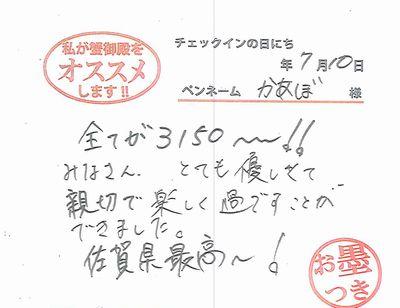 私が蟹御殿を
オススメ
します!!
チェックインの日にち
年 7月10日
ペンネーム かあぼ 様
全てが3150〜〜!!
みなさん とても優しくて
親切で楽しく過ごすことが
できました。
佐賀県最高〜!
お墨
つき